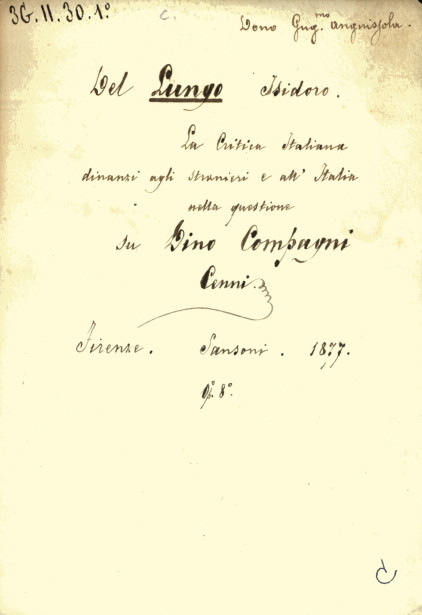 3G.11.30.1º
C.
Dono Gug.mo Anguissola.
Del Lungo Isidoro.
La Critica Italiana
dinanzi agli stranieri e all' Italia
nella questione
su Dino Compagni
Cenni.
Firenze. Sansoni. 1877.
8º.